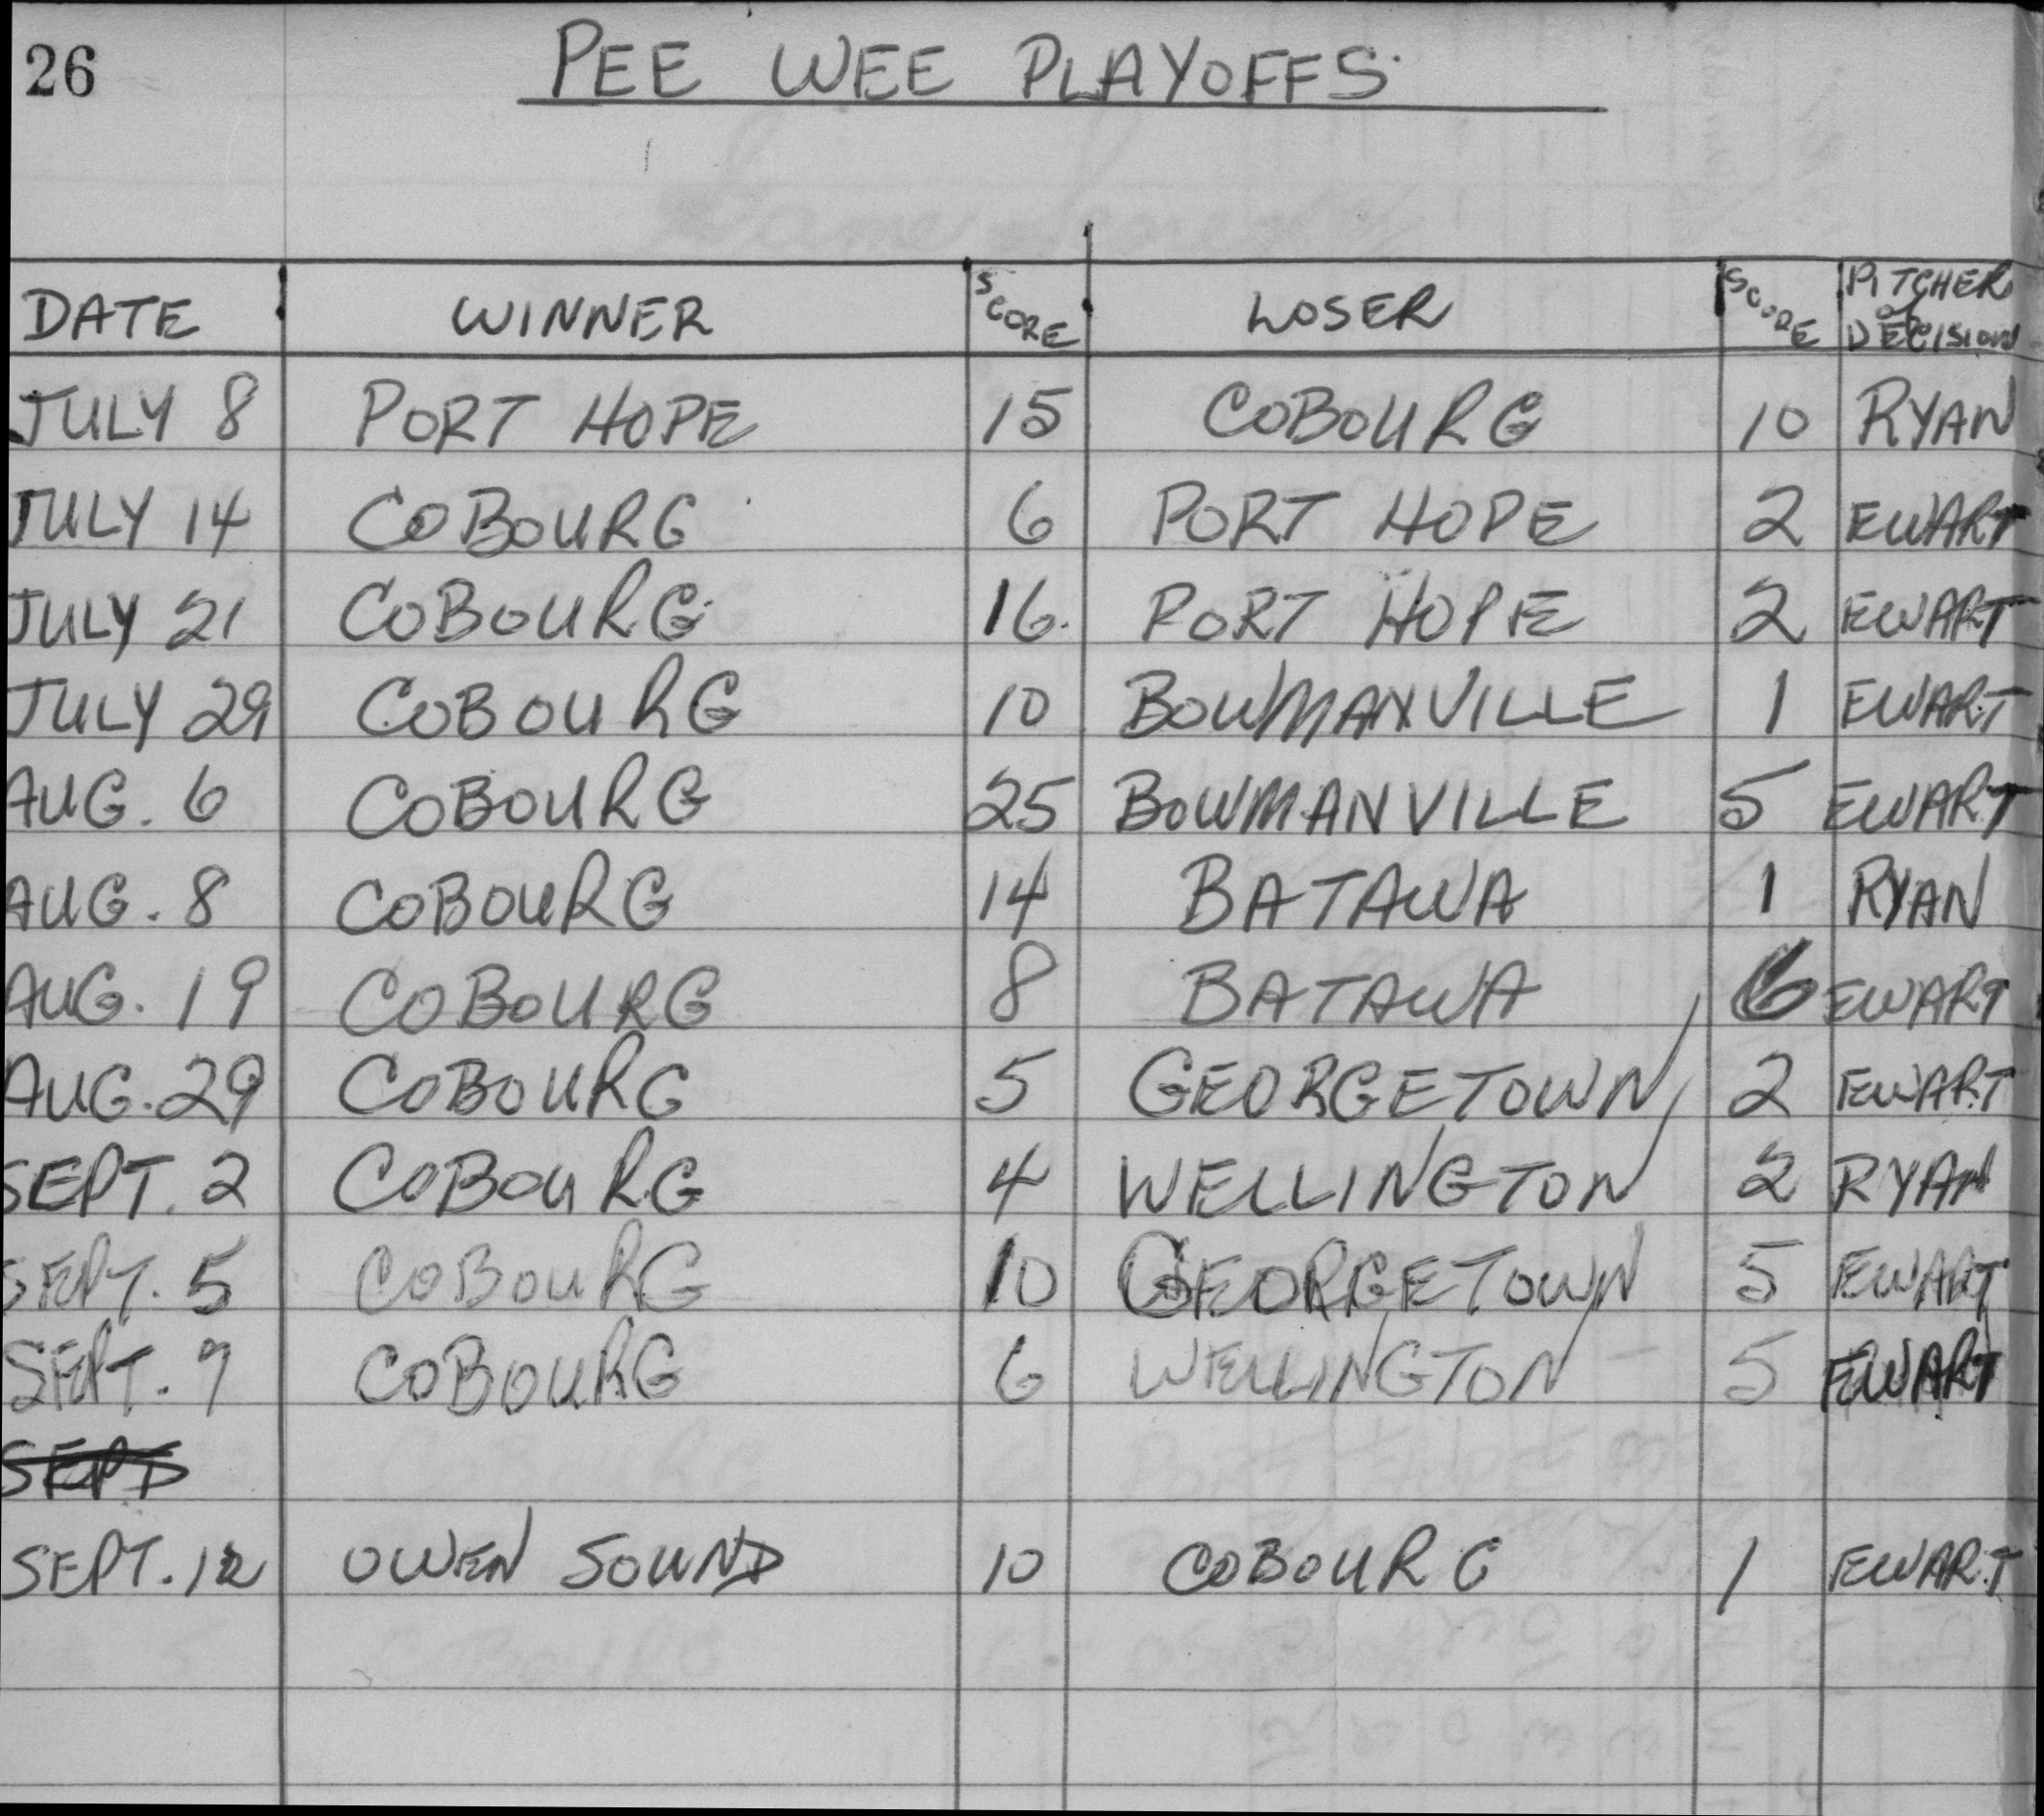 26
PEE WEE PLAYOFFS
DATE WINNER SCORE LOSER SCORE PITCHER of DECISION
JULY 8 PORT HOPE 15 COBOURG 10 RYAN
JULY 14 COBOURG 6 PORT HOPE 2 EWART
JULY 21 COBOURG 16 PORT HOPE 2 EWART
JULY 29 COBOURG 10 BOWMANVILLE 1 EWART
AUG. 6 COBOURG 25 BOWMANVILLE 5 EWART
AUG. 8 COBOURG 14 BATAWA 1 RYAN
AUG. 19 COBOURG 8 BATAWA 6 EWART
AUG. 29 COBOURG 5 GEORGETOWN 2 EWART
SEPT. 2 COBOURG 4 WELLINGTON 2 RYAN
SEPT. 5 COBOURG 10 GEORGETOWN 5 EWART
SEPT. 7 COBOURG 6 WELLINGTON 5 EWART
SEPT. 12 OWEN SOUND 10 COBOURG 1 EWART